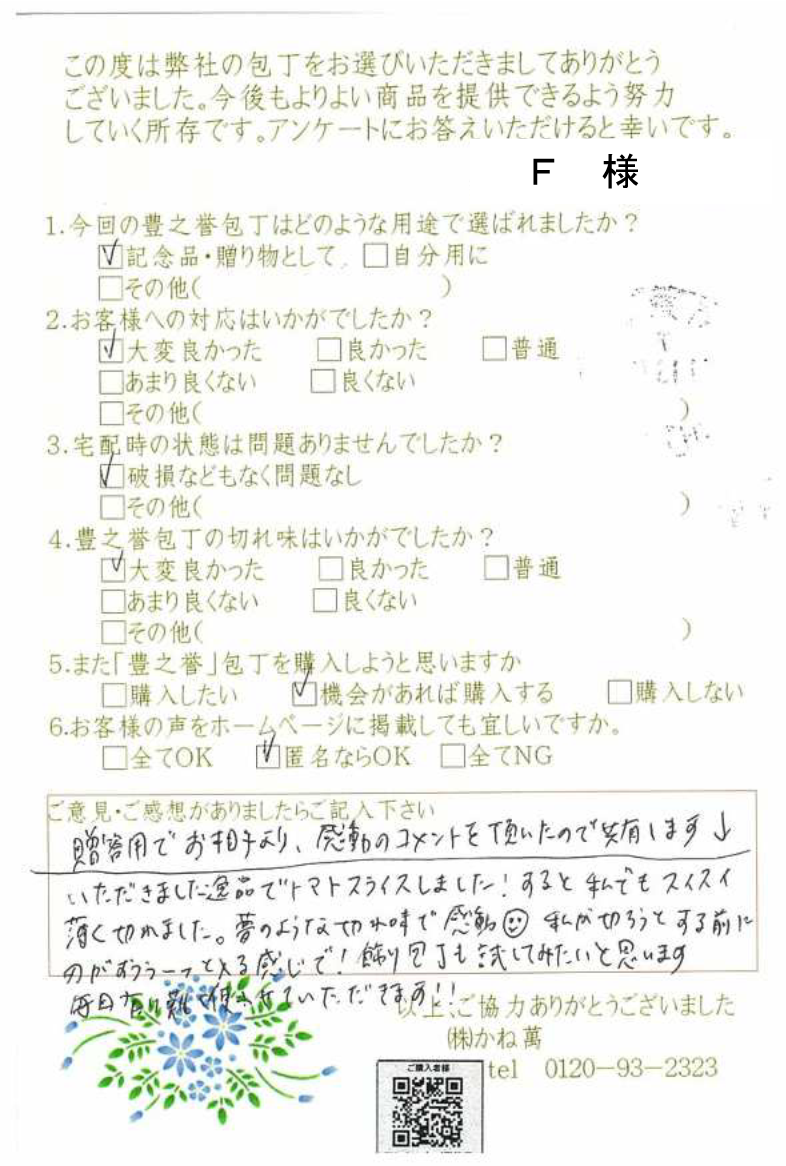 この度は弊社の包丁をお選びいただきましてありがとう
ございました。今後もよりよい商品を提供できるよう努力
していく所存です。アンケートにお答えいただけると幸いです。
F 様
1.今回の豊之誉包丁はどのような用途で選ばれましたか?
☑記念品・贈り物として □自分用に
□その他( )
2.お客様への対応はいかがでしたか?
☑大変良かった □良かった □普通
□あまり良くない □良くない
□その他( )
3.宅配時の状態は問題ありませんでしたか?
☑破損などもなく問題なし
□その他( )
4.豊之誉包丁の切れ味はいかがでしたか?
☑大変良かった □良かった □普通
□あまり良くない □良くない
□その他( )
5.また「豊之誉」包丁を購入しようと思いますか
□購入したい ☑機会があれば購入する □購入しない
6.お客様の声をホームページに掲載しても宜しいですか。
□全てOK ☑匿名ならOK □全てNG
ご意見・ご感想がありましたらご記入下さい
贈答用でお相手より、感動のコメントを頂いたので共有します↓
いただきました逸品でトマトスライスしました!すると私でもスイスイ
薄く切れました。夢のような切れ味で感動☺ 私が切ろうとする前に
感じで!飾り包丁も試してみたいと思います
毎日有り難く使わせていただきます!!
以上、ご協力ありがとうございました
(株)かね萬
tel 0120-93-2323
ご購入者様